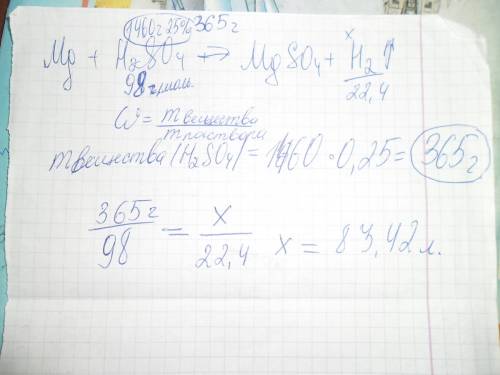 1460г 25% 365г
Mg + H₂SO₄ → MgSO₄ + H₂↑
x
98 г/моль 22,4
ω = m вещества / m раствора
m вещества (H₂SO₄) = 1460 · 0,25 = 365 г
365 г / 98 = x / 22,4 x = 83,42 л.